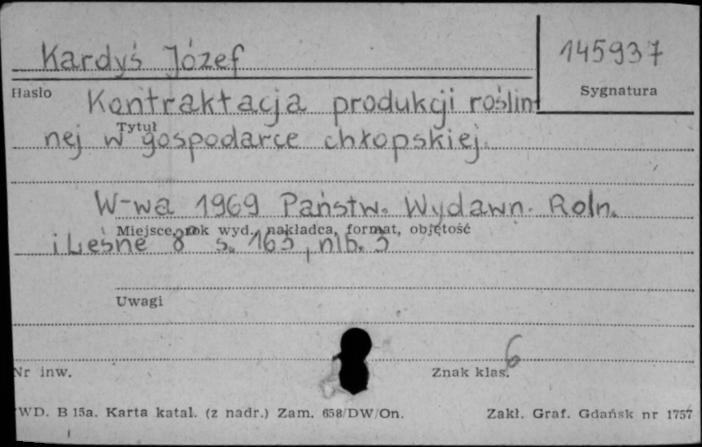 Kardyś Józef
145937
Hasło
Sygnatura
Kontraktacja produkcji roślin
Tytuł
nej w gospodarce chłopskiej.
W-wa 1969 Państw. Wydawn. Roln.
Miejsce, rok wyd., nakładca, format, objętość
i Leśne 8° s. 163, nlb. 3
Uwagi
6
Nr inw.
Znak klas.
WD. B 15a. Karta katal. (z nadr.) Zam. 658/DW/On.
Zakł. Graf. Gdańsk nr 1757